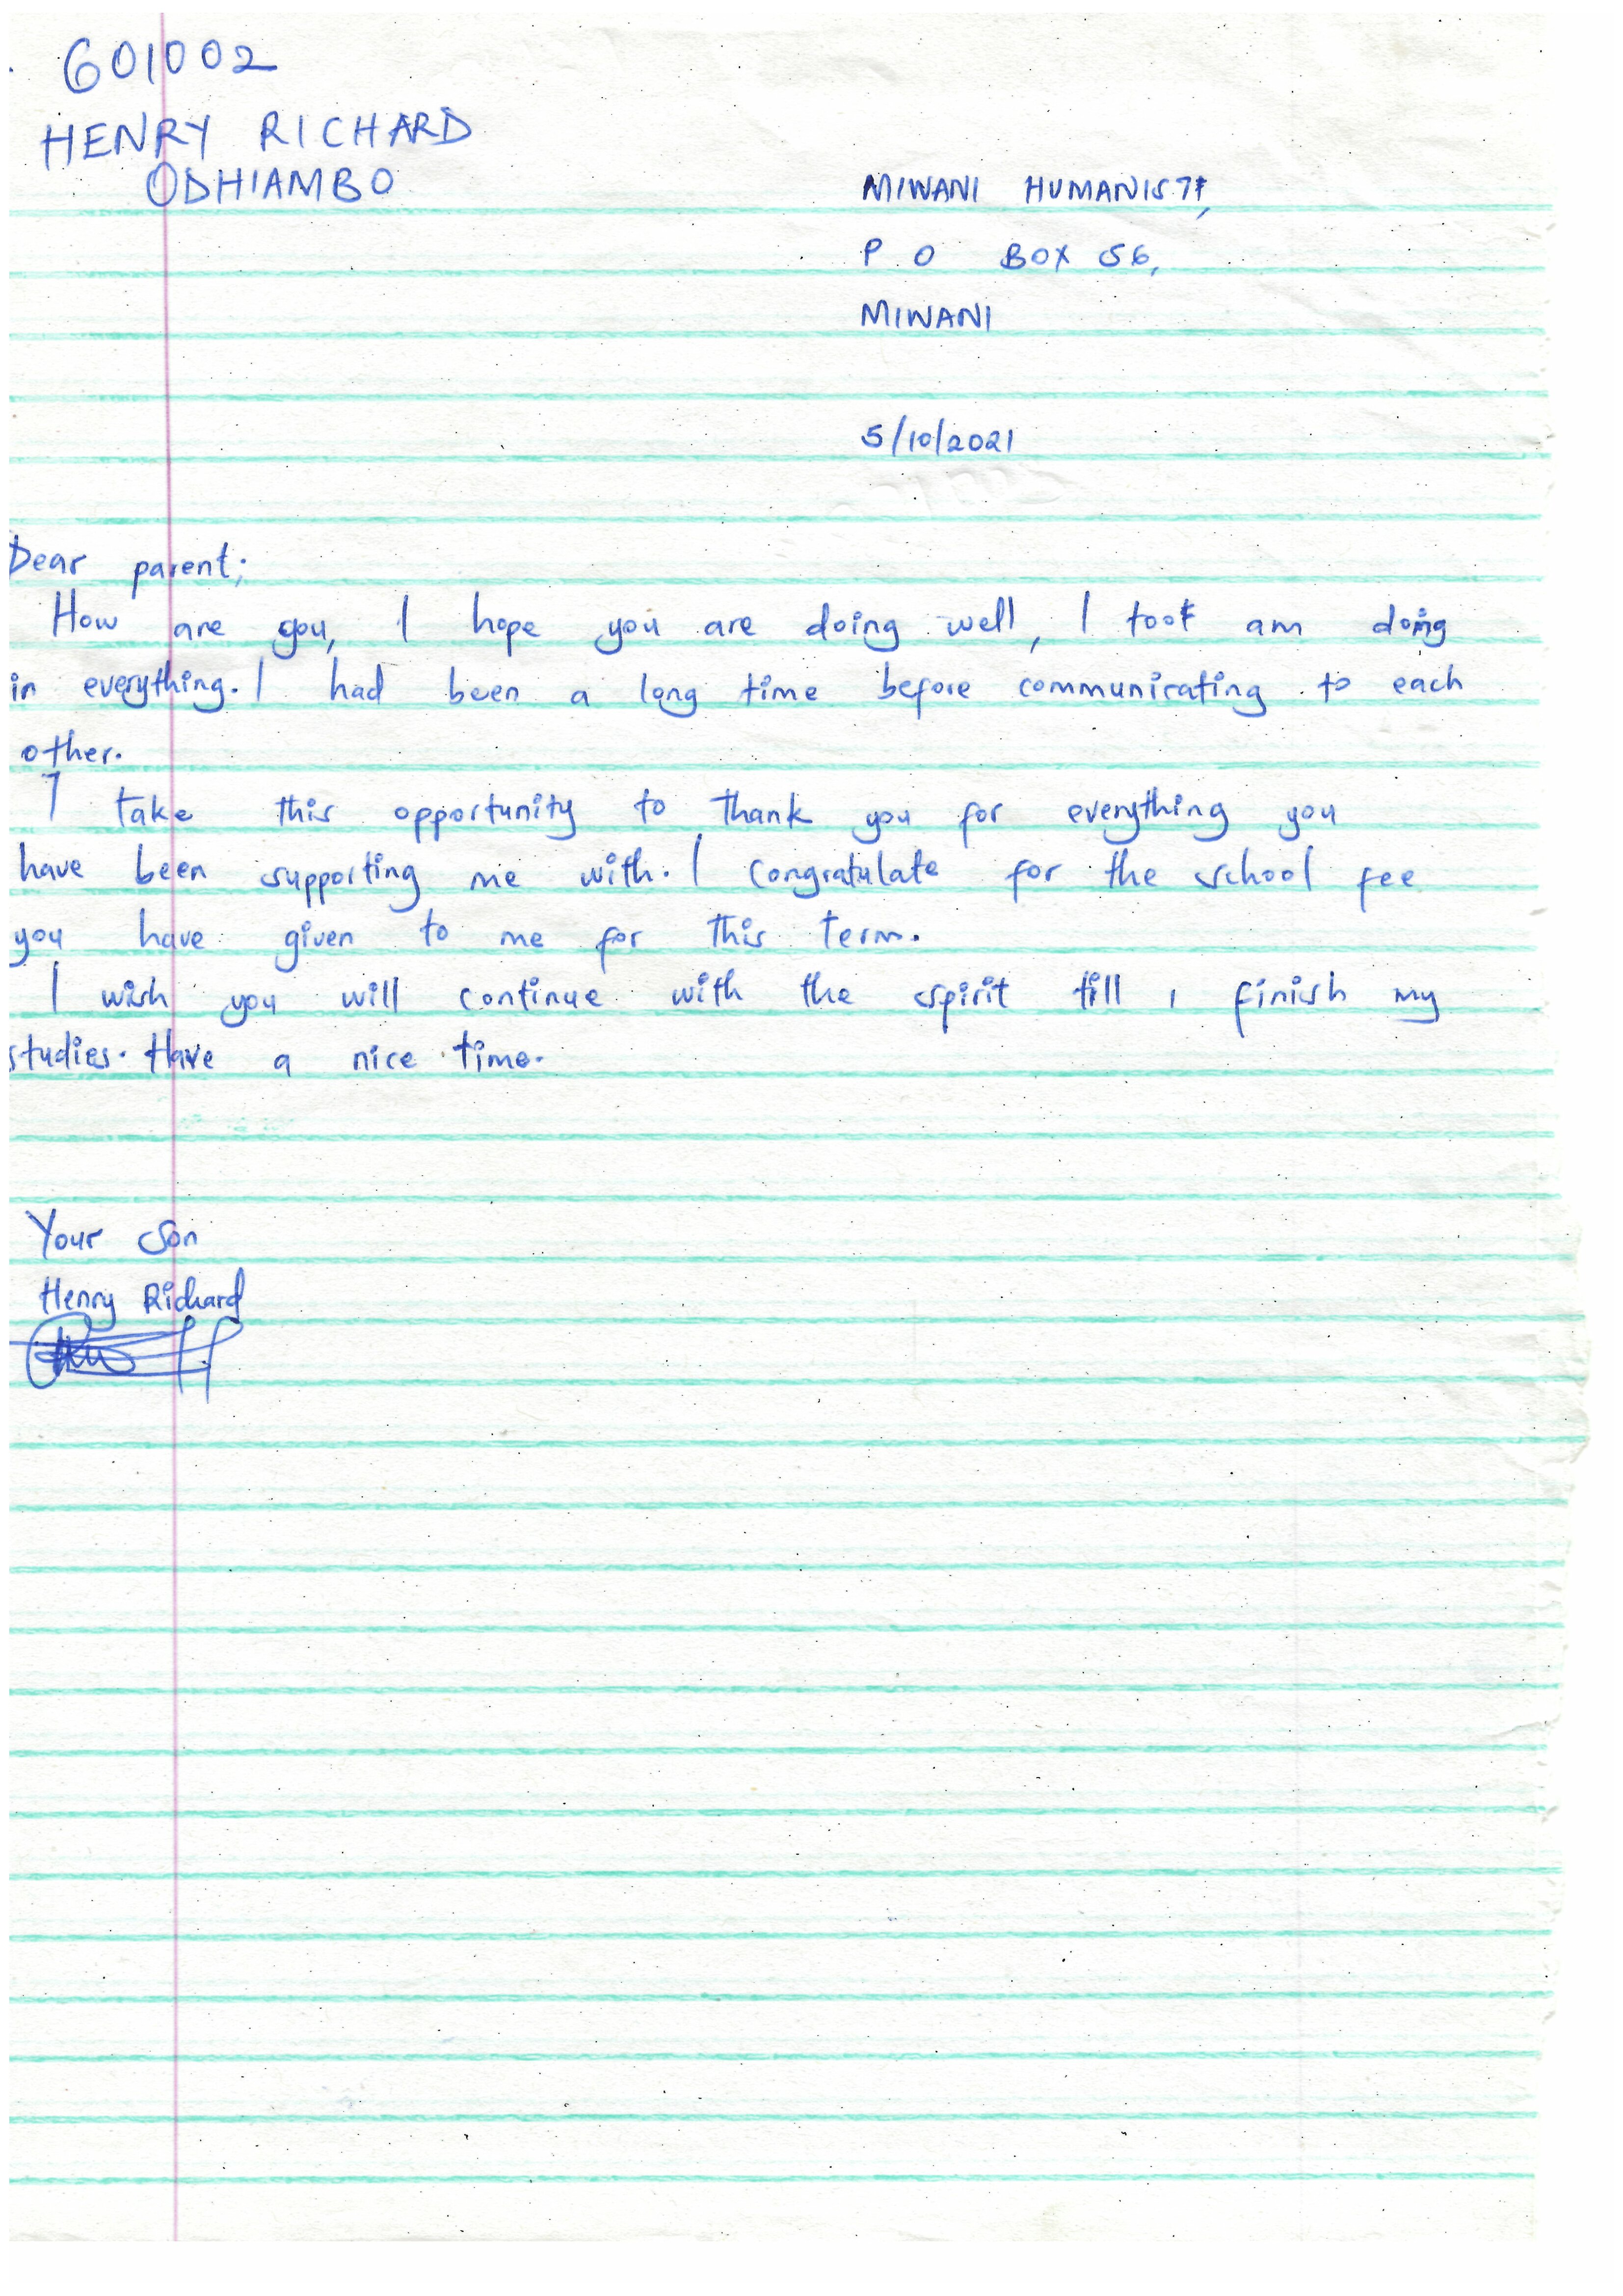 601002
HENRY RICHARD
ODHIAMBO
MIWANI HUMANIST,
P O BOX 56,
MIWANI
5/10/2021
Dear parent;
How are you, I hope you are doing well, I too am doing
in everything. I had been a long time before communicating to each
other.
I take this opportunity to thank you for everything you
have been supporting me with. I congratulate for the school fee
you have given to me for this term.
I wish you will continue with the spirit till I finish my
studies. Have a nice time.
Your son
Henry Richard